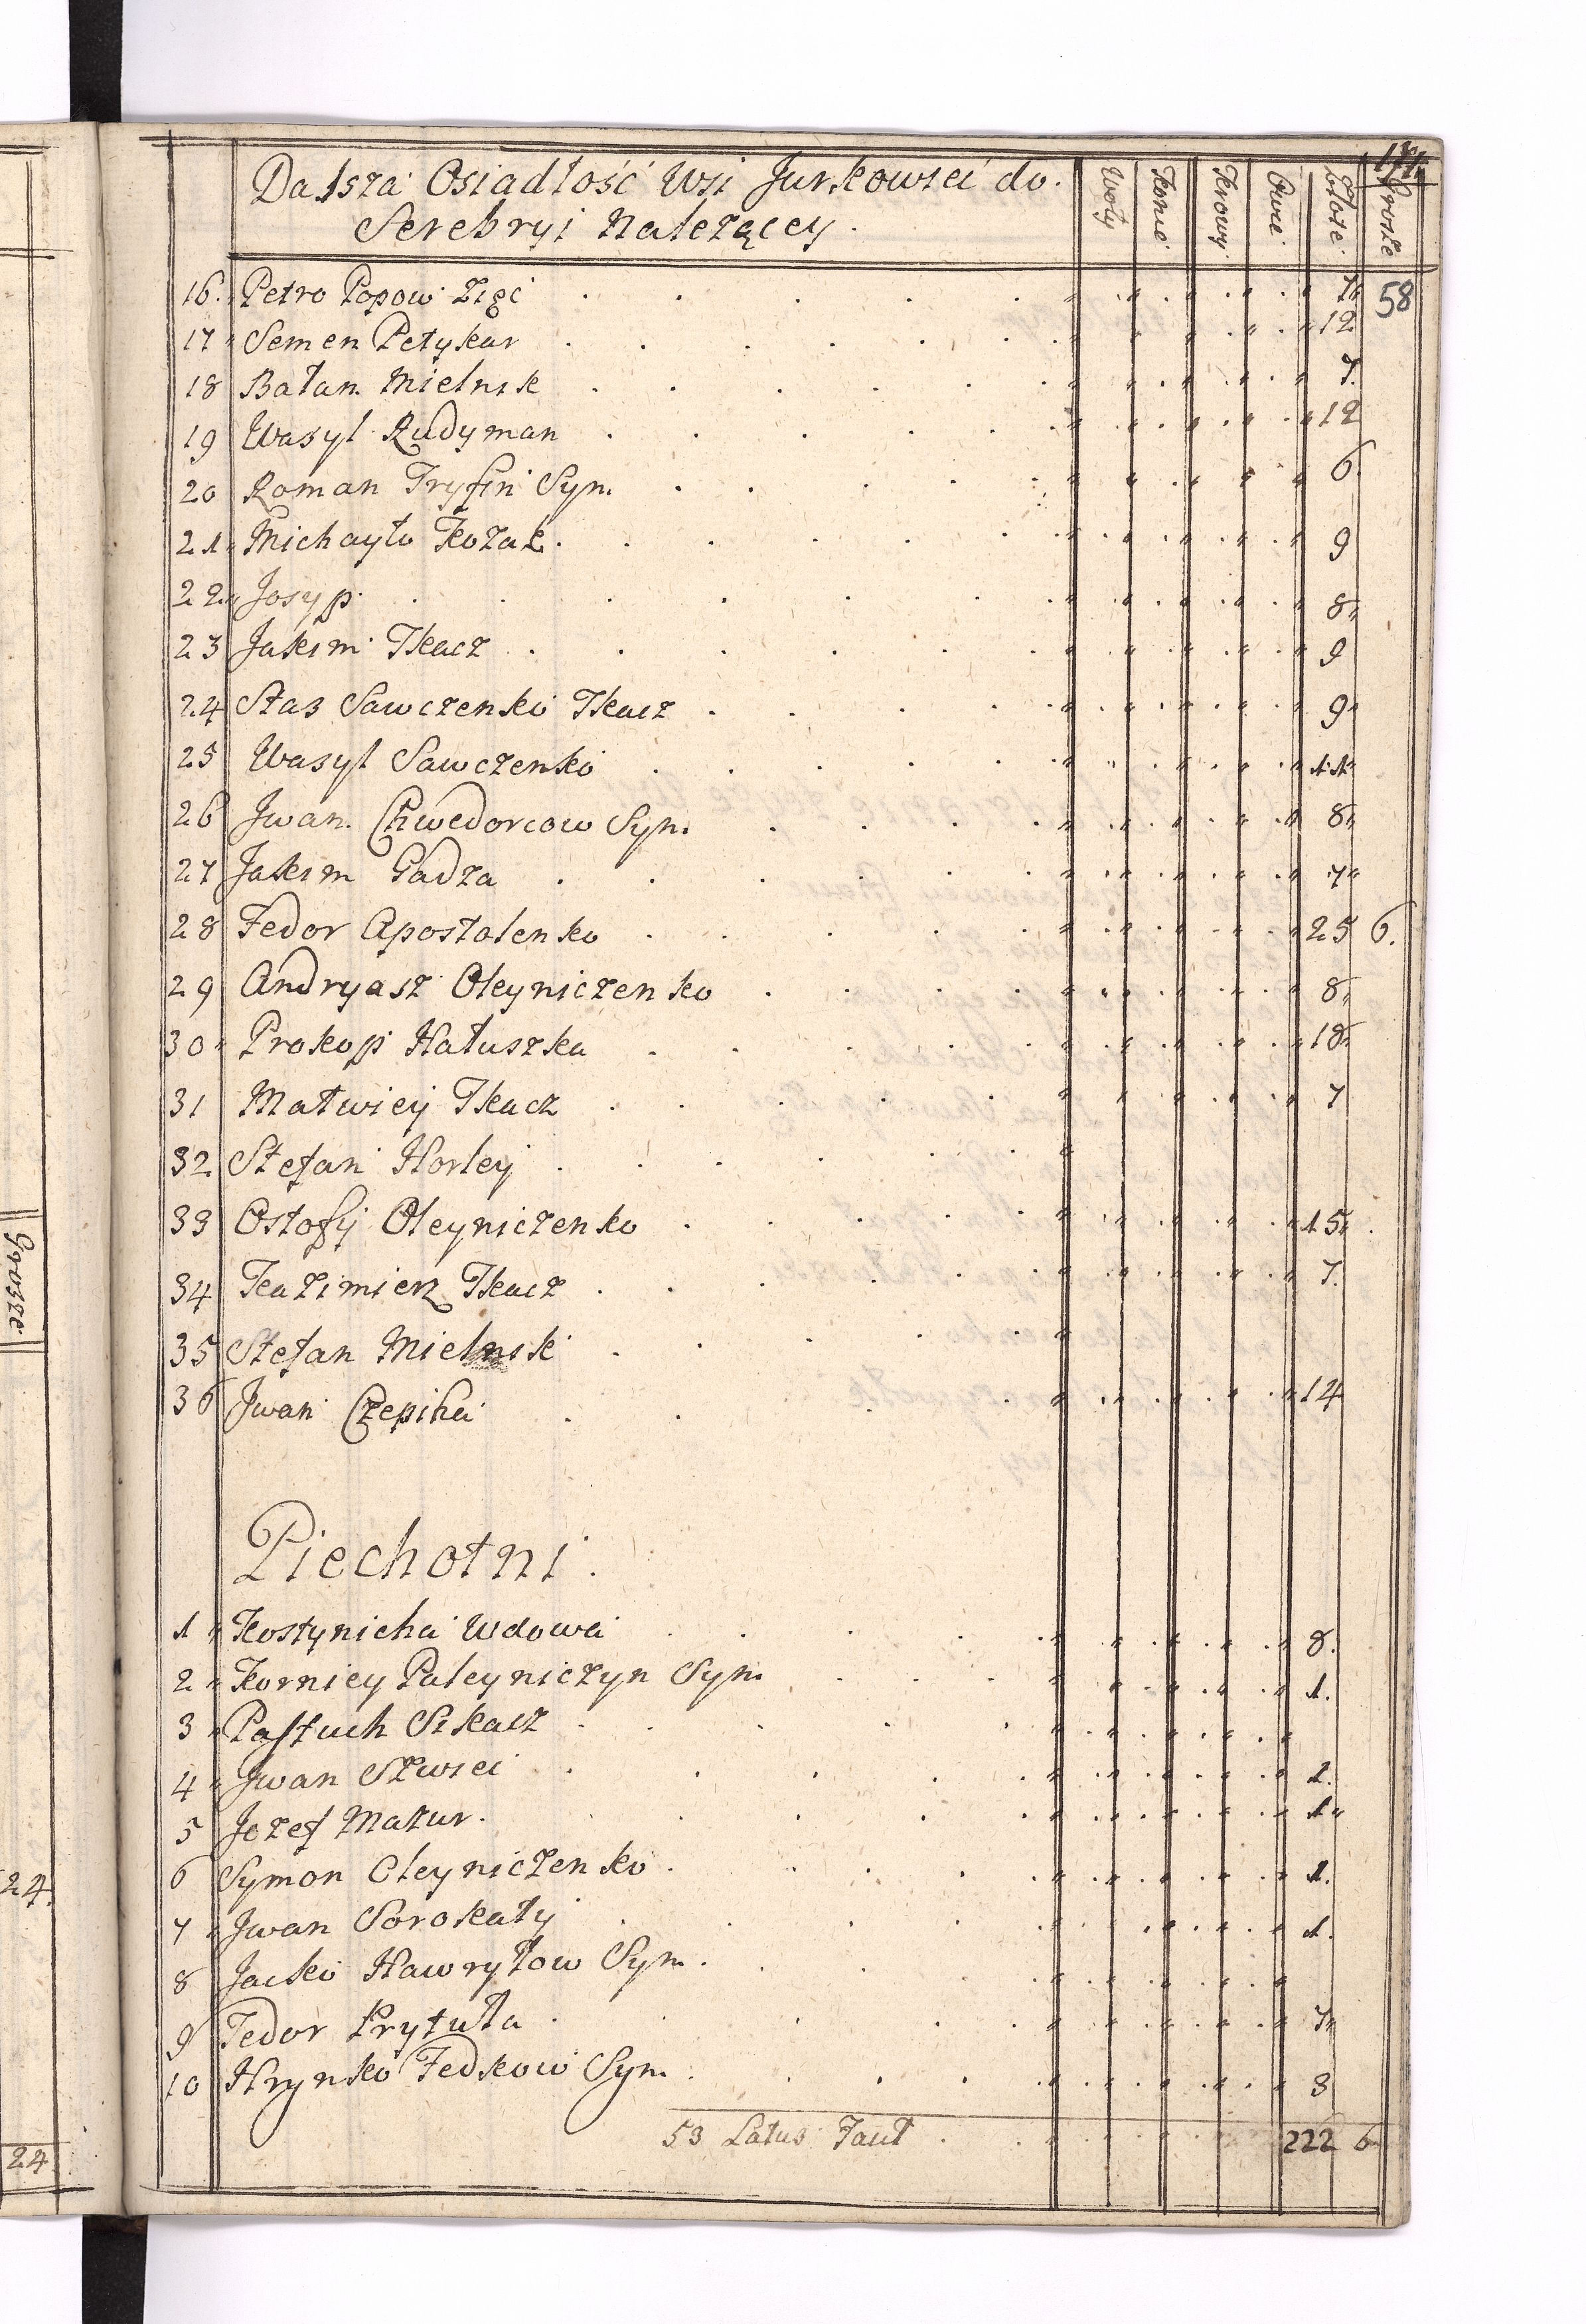 Dalsza Osiadłość Wsi Jurkowki do
Serebryi Należący.
Woły Konie Krowy Owce Złote Grosze
58
16. Petro Popow Zięć 7
17 Semen Petykar 12
18 Bałan Mielnik 7.
19 Wasyl Rudyman 12
20 Roman Tryfin Syn. 6.
21 Michayło Kozak 9
22 Josyp 8
23 Jakim Tkacz 9
24 Stas Sawczenko Tkacz 9
25 Wasyl Sawczenko 11
26 Jwan Chwedorcow Syn. 8
27 Jakim Gadza 7
28 Fedor Apostolenko 25 6.
29 Andryasz Oleyniczenko 8
30 Prokop Hałuszka 18
31 Matwiey Tkacz 7
32 Stefan Horley
33 Ostofij Oleyniczenko 15
34 Kazimierz Tkacz 7.
35 Stefan Mielnik
36 Jwan Czepiha 14
Piechotni.
1 Kostynicha Wdowa 8.
2 Korniey Paleyniczyn Syn. 1.
3 Pastuch Sikacz
4 Jwan Szwiec 1.
5 Jozef Mazur. 1
6 Symon Oleyniczenko 1.
7 Jwan Sorokaty 1.
8 Jacko Hawryłow Syn.
9 Fedor Prytuła 7
10 Hrynko Fedkow Syn. 8
53 Latus Facit 222 6
Grosze
24.
24